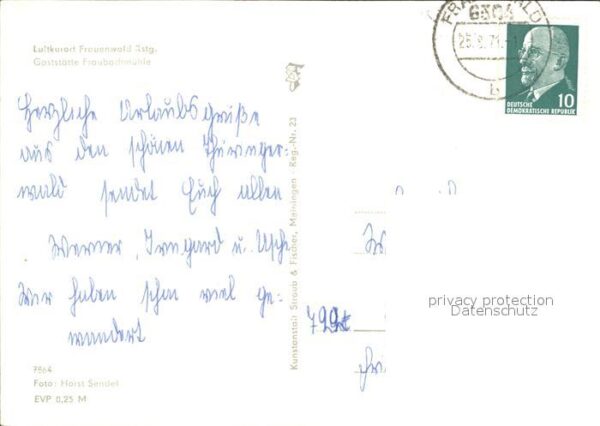 Luftkurort Frauenwald Rstg.
Gaststätte Fraubachmühle
Herzliche Urlaubsgrüße
aus den schönen Thüringer-
wald sendet Euch allen
Werner, Irmgard u. Usche
Wir haben schon viel ge-
wandert
7864
Foto: Horst Sendel
EVP 0,25 M
Kunstanstalt Straub & Fischer, Meiningen · Reg.-Nr. 23
6504
b
DEUTSCHE
DEMOKRATISCHE REPUBLIK
10
privacy protection
Datenschutz